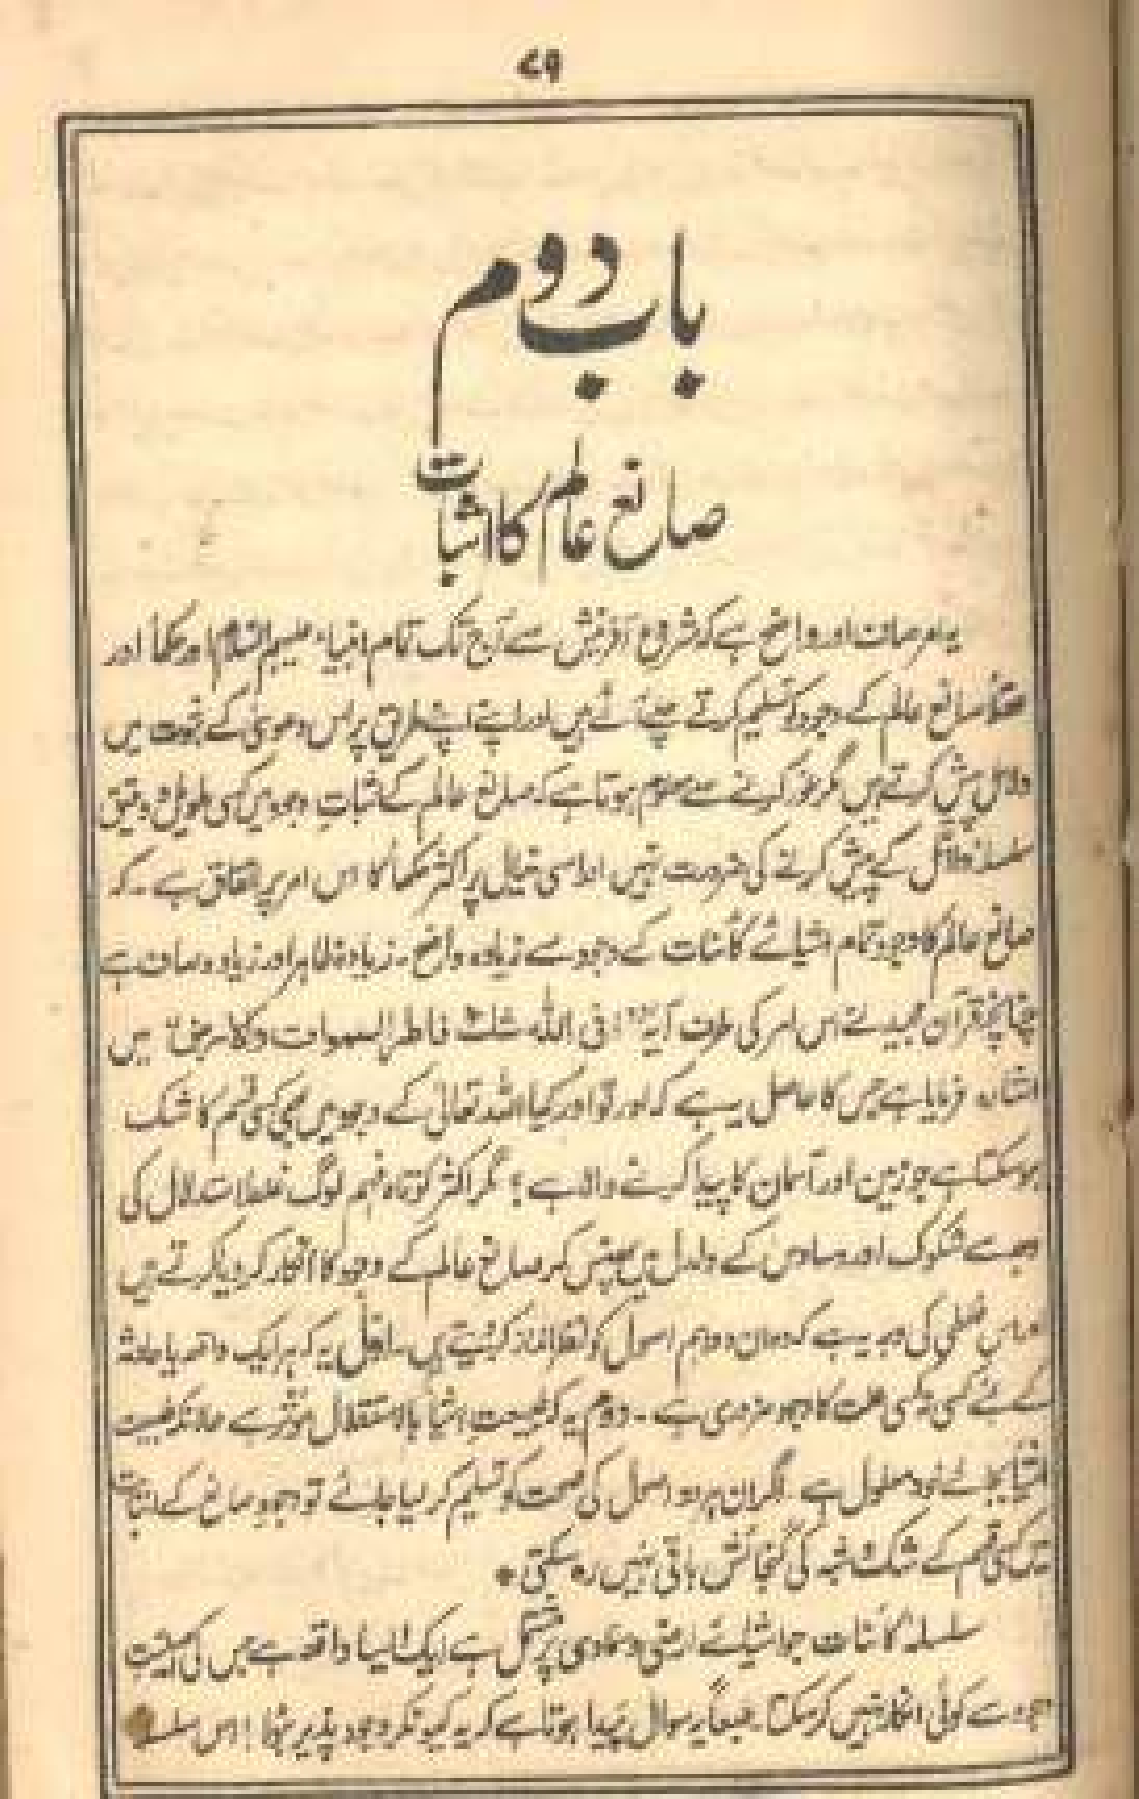 ۷۹
باب دوم
صانع عالم کا اثبات
یہ امر صاف اور واضح ہے کہ شروع آفرینش سے آج تک تمام انبیاء علیہم السلام اور حکما اور
عقلا صانع عالم کے وجود کو تسلیم کرتے چلے آئے ہیں اور اپنے اپنے طریق پر اس دعویٰ کے ثبوت میں
دلائل پیش کرتے ہیں مگر غور کرنے سے معلوم ہوتا ہے کہ صانع عالم کے اثبات وجود میں کسی طویل و دقیق
سلسلۂ دلائل کے پیش کرنے کی ضرورت نہیں اور اسی خیال پر اکثر حکما کا اس امر پر اتفاق ہے ۔ کہ
صانع عالم کا وجود تمام اشیائے کائنات کے وجود سے زیادہ واضح ۔ زیادہ ظاہر اور زیادہ صاف ہے
چنانچہ قرآن مجید نے اس امر کی طرف آیۂ " افی اللہ شک فاطر السموات والارض " میں
اشارہ فرمایا ہے جس کا حاصل یہ ہے کہ اور تو اور کیا اللہ تعالیٰ کے وجود میں بھی کسی قسم کا شک
ہو سکتا ہے جو زمین اور آسمان کا پیدا کرنے والا ہے ؟ مگر اکثر کوتاہ فہم لوگ غلط استدلال کی
وجہ سے شکوک اور وساوس کے دلدل میں پھنس کر صانع عالم کے وجود کا انکار کر دیا کرتے ہیں
اور اس غلطی کی وجہ یہ ہے کہ وہ ان دو اہم اصول کو نظر انداز کر دیتے ہیں ۔ اول یہ کہ ہر ایک واقعہ یا حادثہ
کے لئے کسی نہ کسی علت کا وجود ضروری ہے ۔ دوم یہ کہ طبیعت اشیا بالاستقلال مؤثر ہے حالانکہ طبیعت
اشیا بجائے خود معلول ہے ۔ اگر ان ہر دو اصول کی صحت کو تسلیم کر لیا جائے تو وجود صانع کے اثبات
میں کسی قسم کے شک و شبہ کی گنجائش باقی نہیں رہ سکتی *
سلسلۂ کائنات جو اشیائے ارضی و سماوی پر مشتمل ہے ایک ایسا واقعہ ہے جس کی
وجود سے کوئی انکار نہیں کر سکتا طبعاً یہ سوال پیدا ہوتا ہے کہ یہ کیونکر وجود پذیر ہوا ! اس سلسلہ